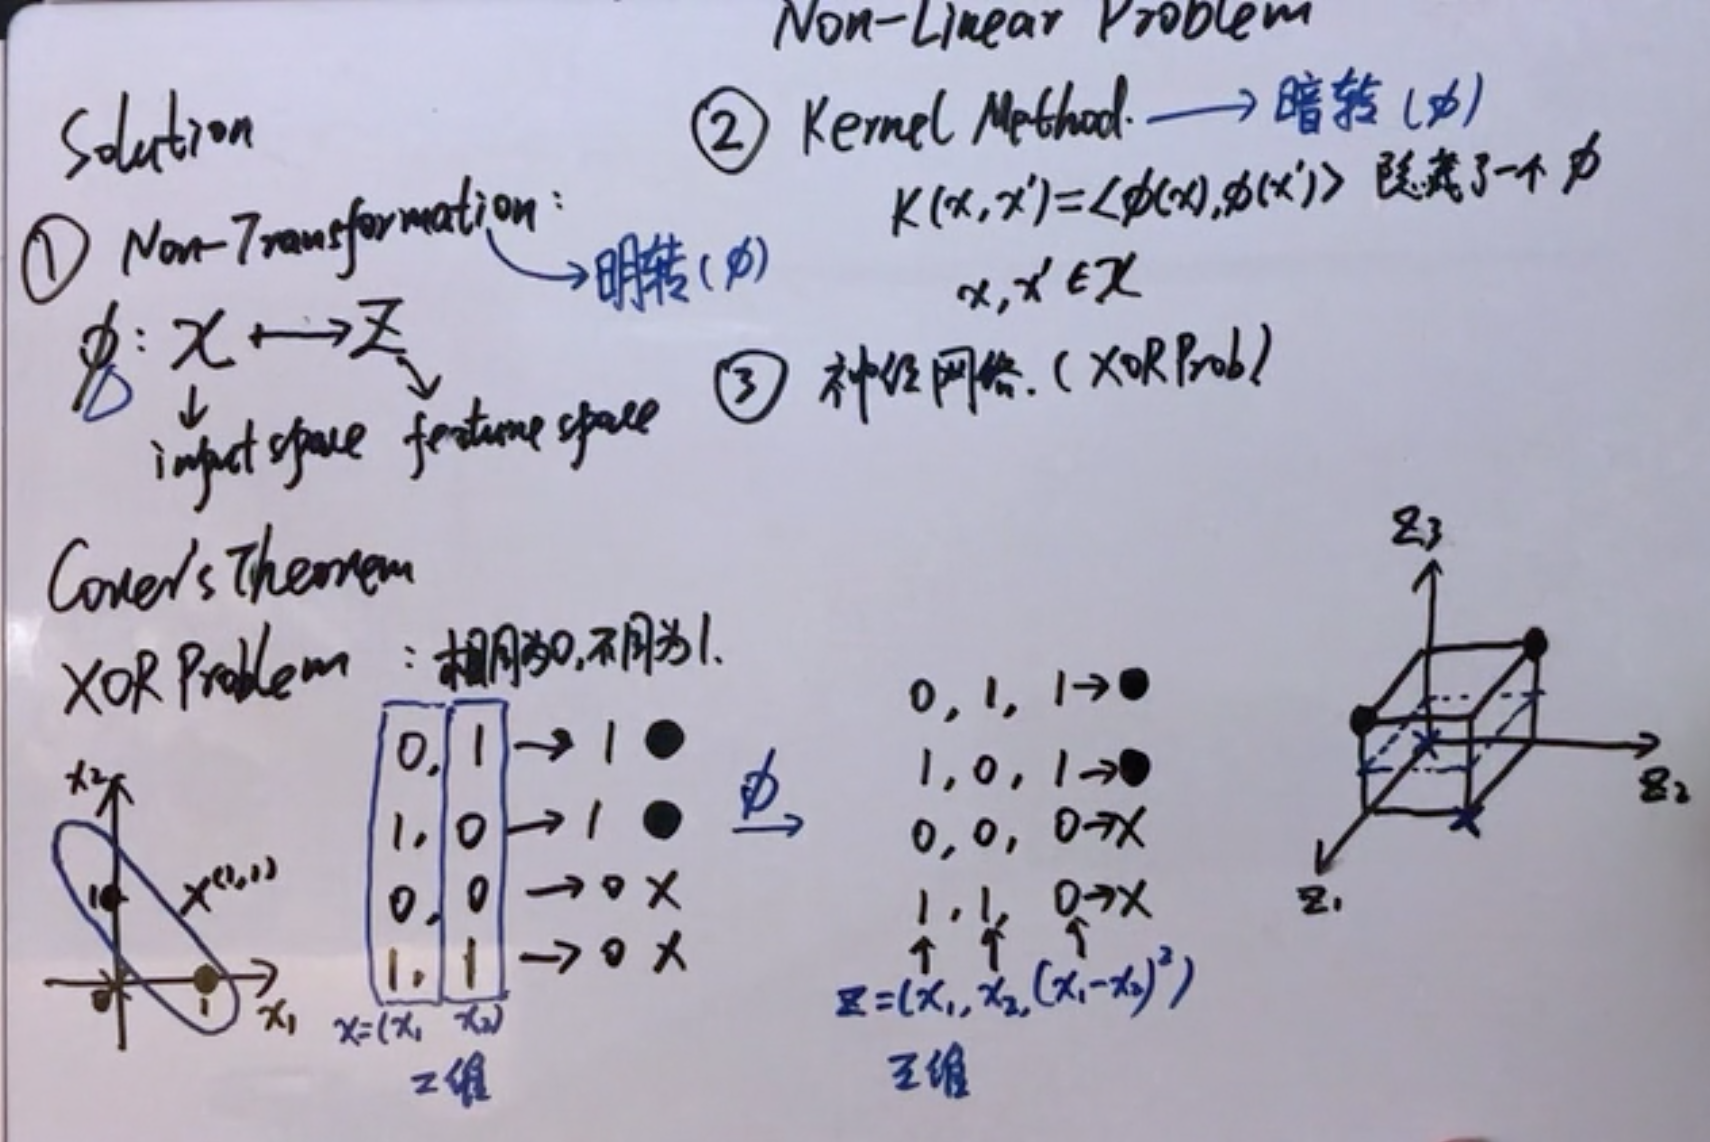 Non-Linear Problem
Solution
① Non-Transformation:
明转(ϕ)
ϕ: X ⟼ Z
input space feature space
② Kernel Method. → 暗转(ϕ)
K(x, x′)=<ϕ(x),ϕ(x′)> 隐藏了一个 ϕ
x, x′ ∈ X
③ 神经网络.(XOR Prob)
Cover's Theorem
XOR Problem : 相同为0,不同为1.
x2
1
x(1,1)
0 1 x1
0, 1 → 1 ●
1, 0 → 1 ●
0, 0 → 0 X
1, 1 → 0 X
x=(x1 x2)
二维
ϕ →
0, 1, 1→●
1, 0, 1→●
0, 0, 0→X
1, 1, 0→X
Z=(x1, x2, (x1-x2)²)
三维
Z3
Z2
Z1